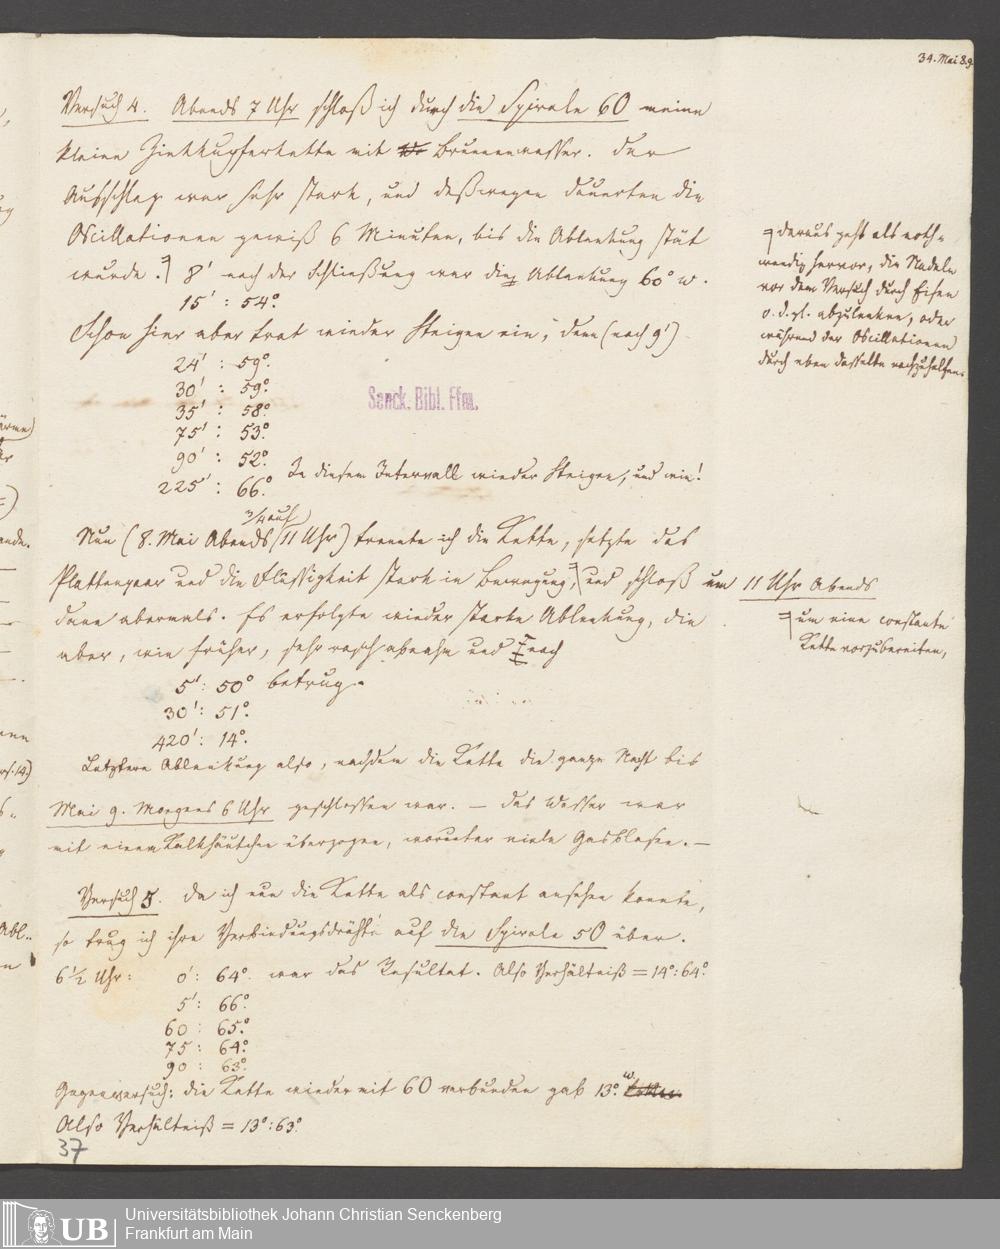 34. Mai 8.9.
Versuch 4. Abends 7 Uhr schloß ich durch die Spirale 60 meine
kleine Zinkkupferkette mit Brunnenwasser. Der
Ausschlag war sehr stark, und deßwegen dauerten die
Oscillationen gewiß 6 Minuten, bis die Ablenkung stät
wurde. 8' nach der Schließung war die Ablenkung 60° w.
15' : 54°.
Schon hier aber trat wieder Steigen ein, denn (nach 9')
24' : 59°.
30' : 59°.
35' : 58°.
75' : 53°.
90' : 52°.
225' : 66°.
In diesem Intervall wieder Steigen, und wie!
daraus geht als noth-
wendig hervor, die Nadeln
vor dem Versuch durch Eisen
o. d. gl. abzulenken, oder
während der Oscillationen
durch eben dasselbe nachzuhelfen.
Senck. Bibl. Ffm.
3/4 auf
Nun (8. Mai Abends 11 Uhr) trennte ich die Kette, setzte das
Plattenpaar und die Flüssigkeit stark in Bewegung, und schloß um 11 Uhr Abends
dann abermals. Es erfolgte wieder starke Ablenkung, die
aber, wie früher, sehr rasch abnahm und nach
um eine constante
Kette vorzubereiten,
5' : 50° betrug.
30' : 51°.
420' : 14°.
Letztere Ablenkung also, nachdem die Kette die ganze Nacht bis
Mai 9. Morgens 6 Uhr geschlossen war. — Das Wasser war
mit einem Kalkhäutchen überzogen, worunter viele Gasblasen. —
Versuch 5. Da ich nun die Kette als constant ansehen konnte,
so trug ich ihre Verbindungsdrähte auf die Spirale 50 über.
6 1/2 Uhr: 0' : 64°. war das Resultat. Also Verhältniß = 14° : 64°.
5' : 66°.
60 : 65°.
75 : 64°.
90 : 63°.
Gegenversuch: die Kette wieder mit 60 verbunden gab 13°. w
Also Verhältniß = 13° : 63°.
37
UB
Universitätsbibliothek Johann Christian Senckenberg
Frankfurt am Main